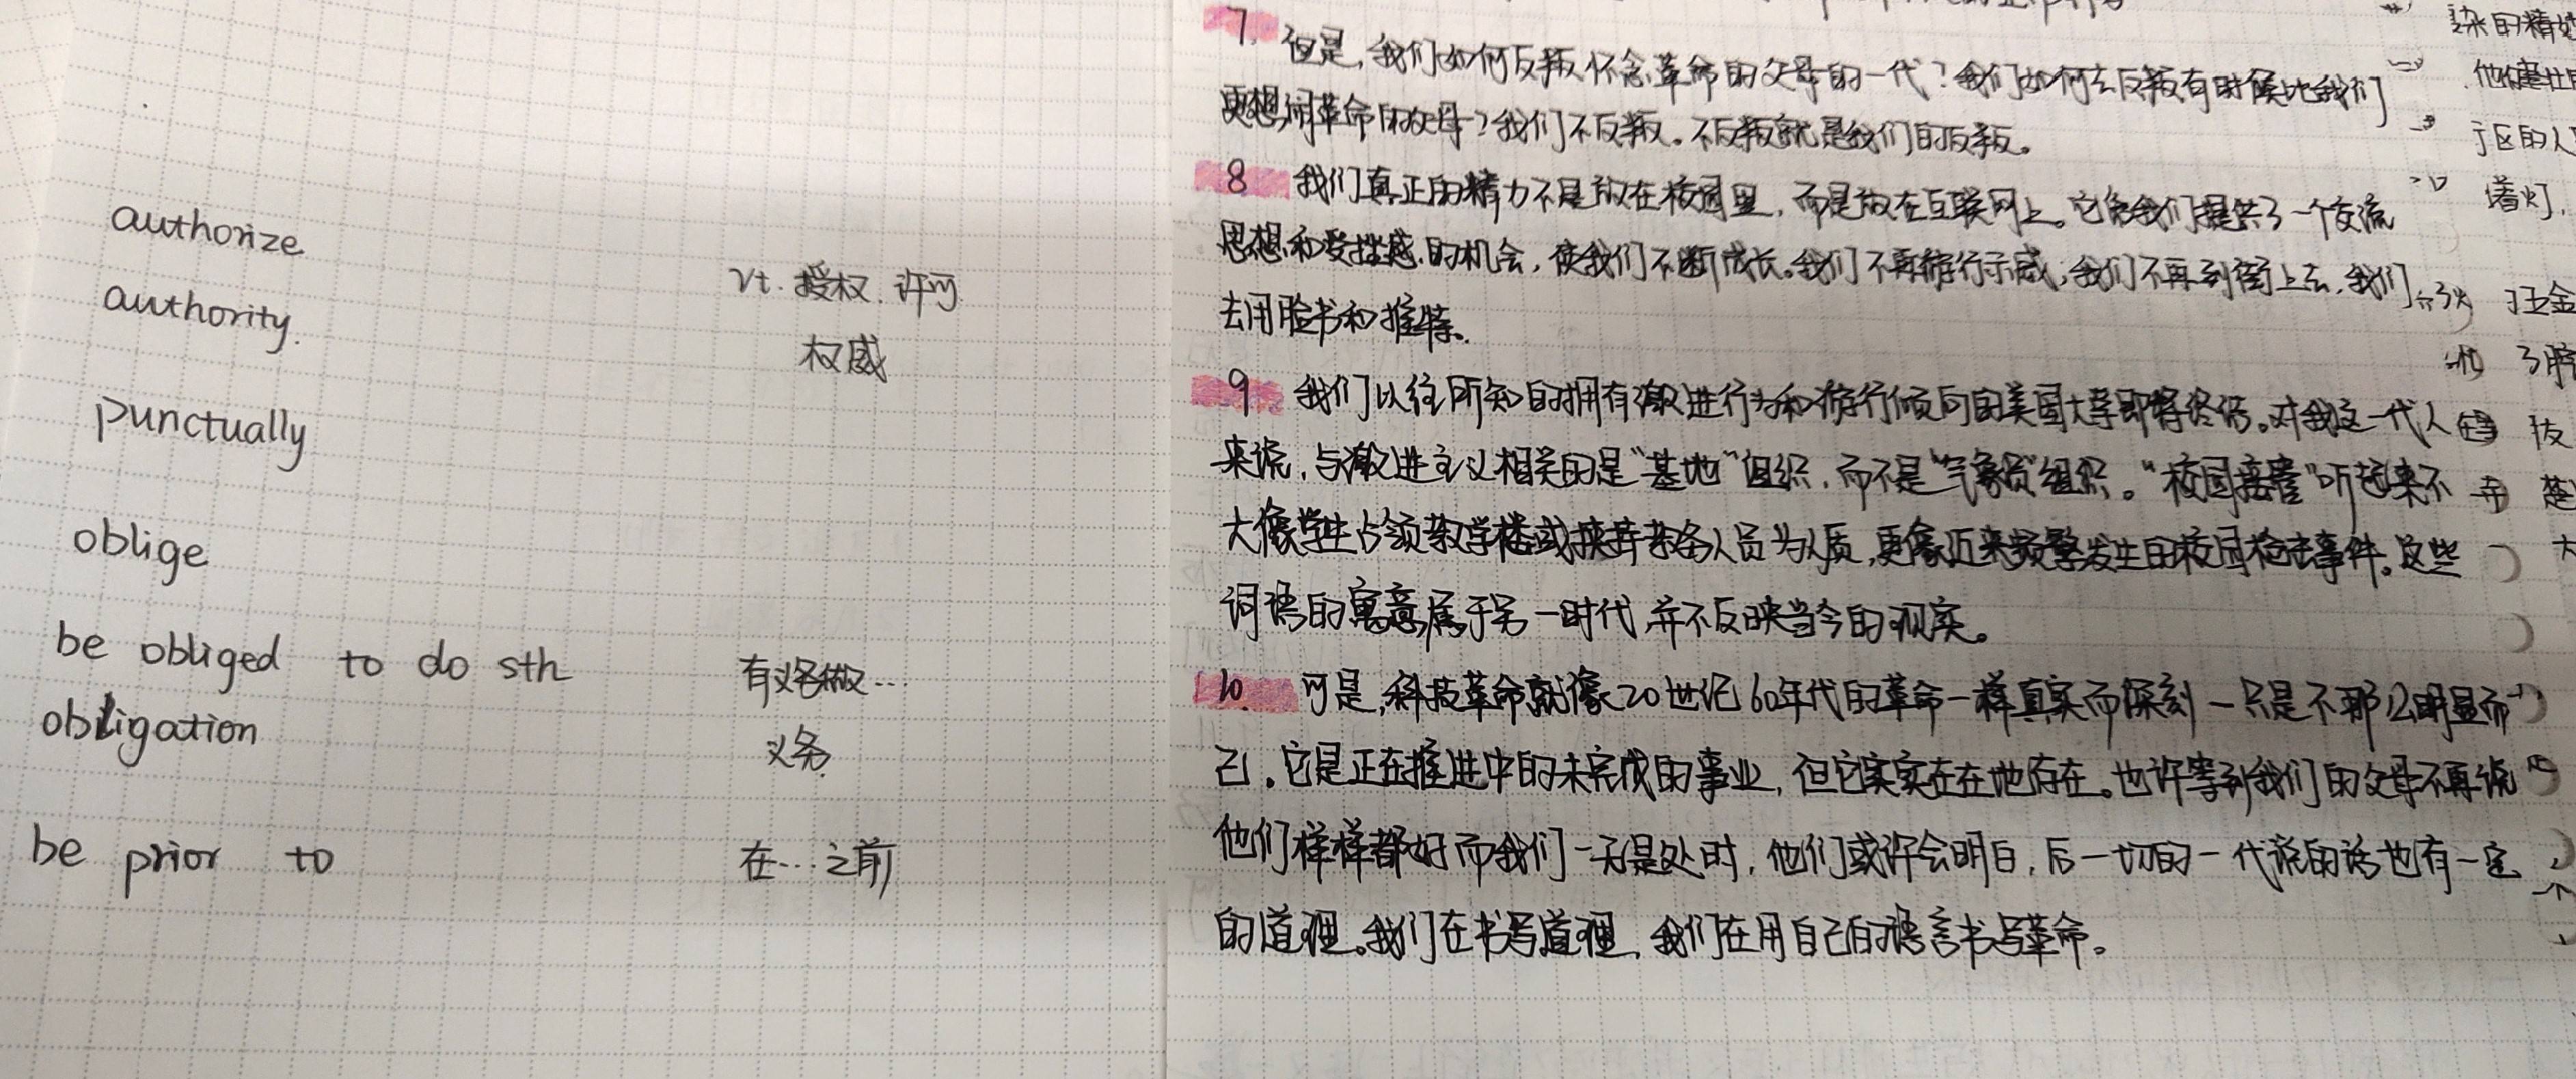 authorize
vt. 授权. 许可
authority.
权威
punctually
oblige
be obliged to do sth
有义务做…
obligation
义务.
be prior to
在…之前
7. 但是,我们如何反叛怀念革命的父母的一代?我们如何去反叛有时候比我们
更想闹革命的父母?我们不反叛。不反叛就是我们的反叛。
8 我们真正的精力不是放在校园里,而是放在互联网上。它给我们提供了一个交流
思想和受挫感的机会,使我们不断成长。我们不再游行示威,我们不再到街上去,我们
去用脸书和推特.
9. 我们以往所知的拥有激进行为和游行倾向的美国大学即将终结。对我这一代人
来说,与激进主义相关的是“基地”组织,而不是“气象员”组织。“校园接管”听起来不
大像学生占领教学楼或挟持装备人员为人质,更像近来频繁发生的校园枪击事件。这些
词语的寓意属于另一时代,并不反映当今的现实。
10. 可是,科技革命就像20世纪60年代的革命一样真实而深刻—只是不那么明显而
已。它是正在推进中的未完成的事业,但它实实在在地存在。也许等到我们的父母不再说
他们样样都好而我们一无是处时,他们或许会明白,后一切的一代说的话也有一定
的道理。我们在书写道理,我们在用自己的语言书写革命。